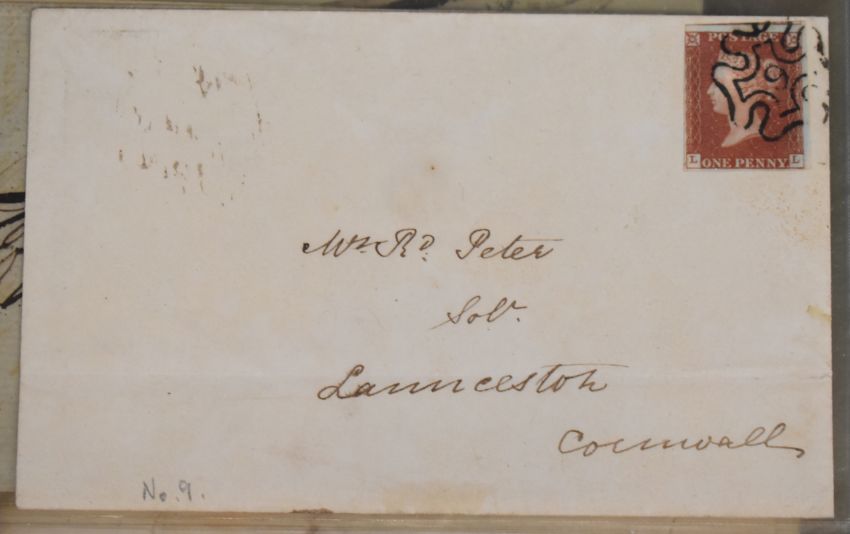 POSTAGE
9
L ONE PENNY L
Mr. Rd. Peter
Solr.
Launceston
Cornwall
No. 9.